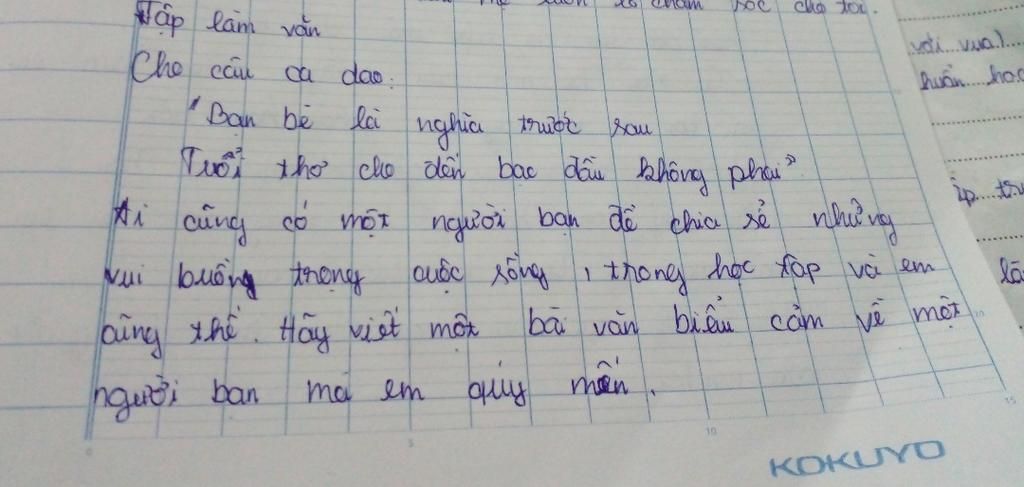 xế chăm sóc cho tôi.
Tập làm văn
Cho câu ca dao:
"Bạn bè là nghĩa trước sau
Tuổi thơ cho đến bạc đầu không phai"
Ai cũng có một người bạn để chia sẻ những
vui buồn trong cuộc sống, trong học tập và em
cũng thế. Hãy viết một bài văn biểu cảm về một
người bạn mà em quý mến.
với vua)
huấn
5
10
15
KOKUYO